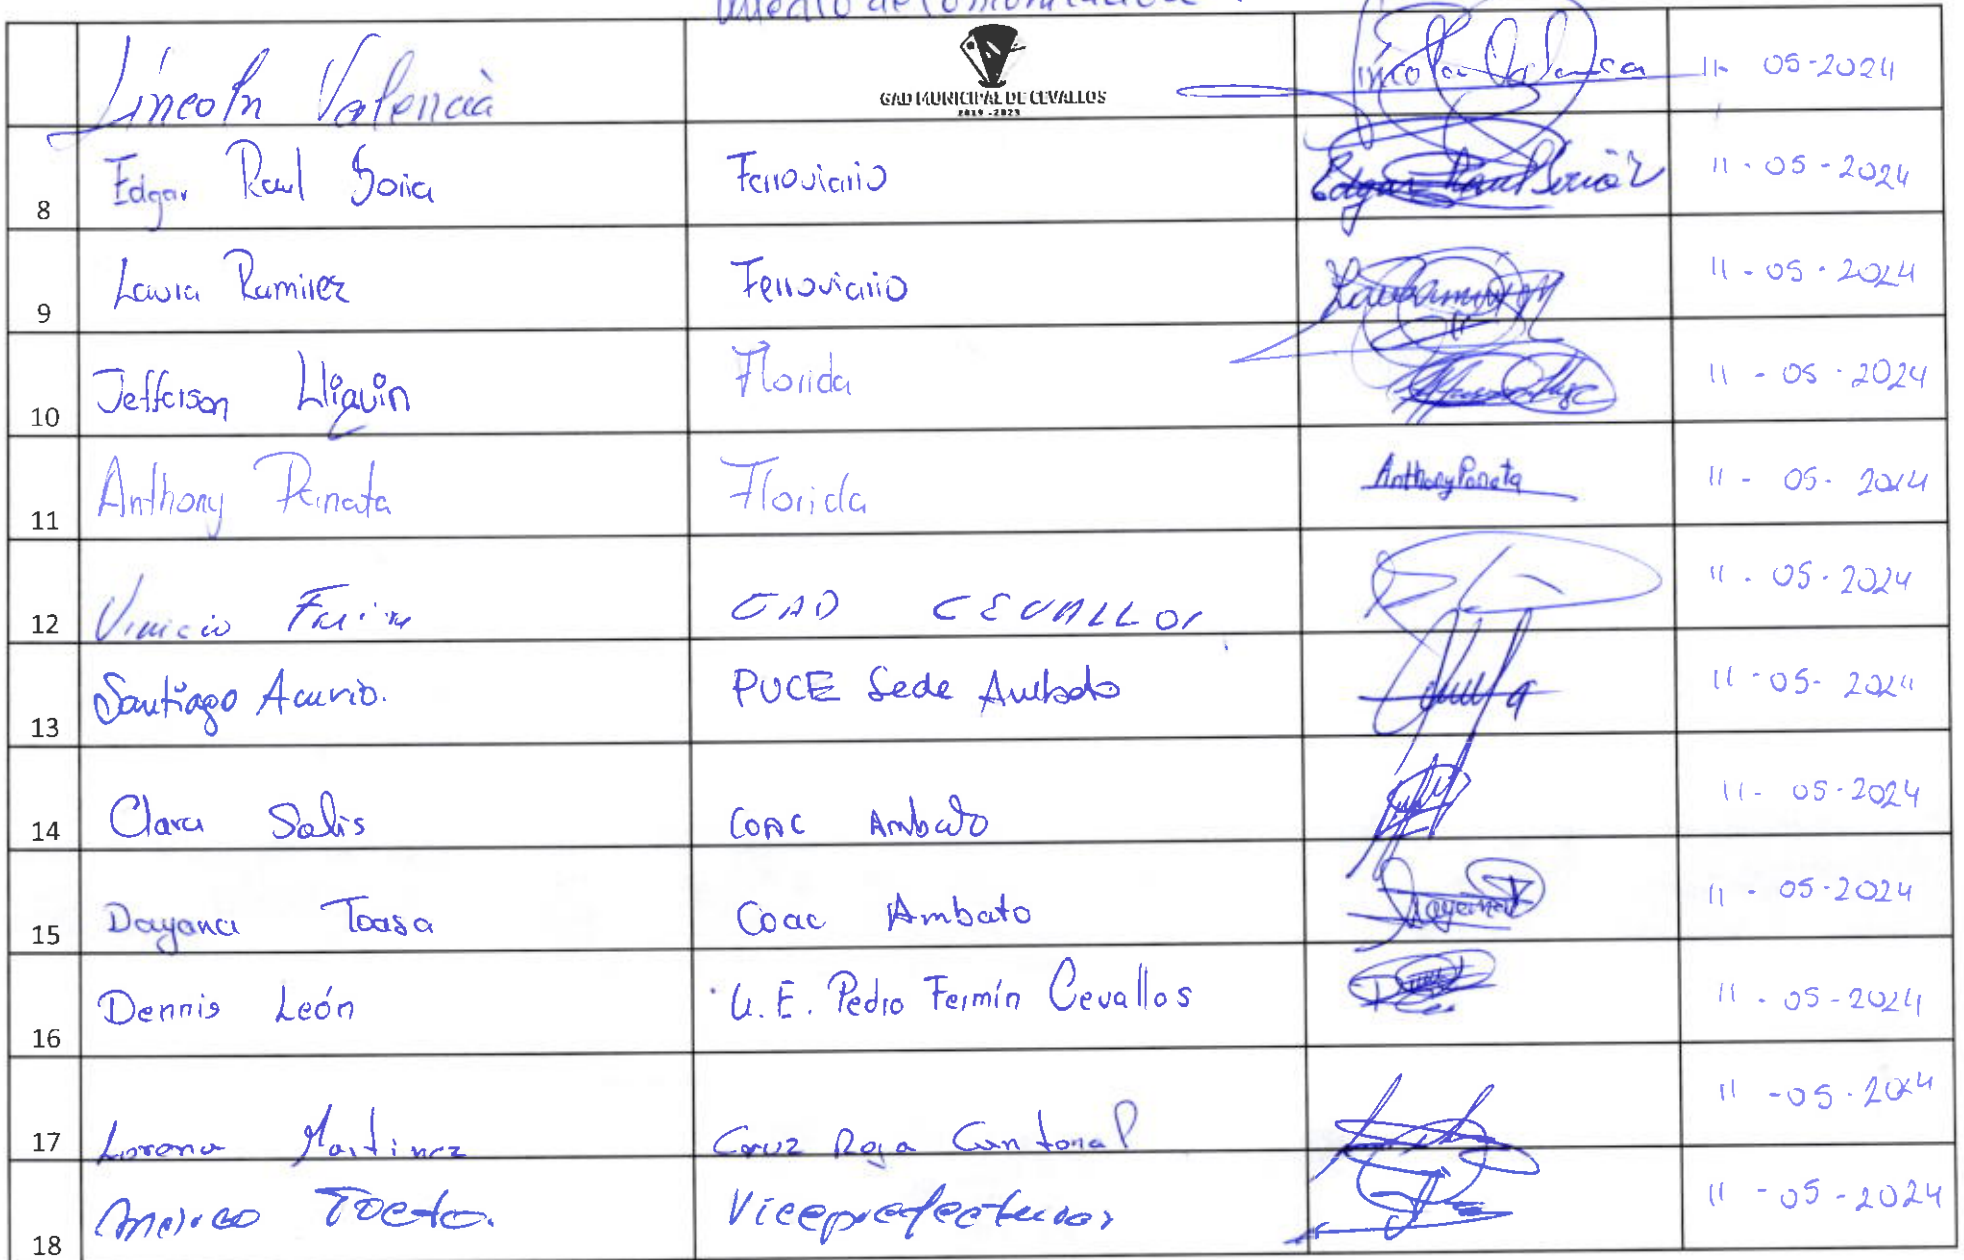 medio de Comunicación
Lincoln Valencia GAD MUNICIPAL DE CEVALLOS Lincoln Valencia 11-05-2024
2019 - 2023
8 Edgar Raul Soria Ferroviario Edgar Raul Soria 11-05-2024
9 Laura Ramirez Ferroviario 11-05-2024
10 Jefferson Lliquin Florida 11-05-2024
11 Anthony Panata Florida Anthony Panata 11-05-2024
12 Vinicio GAD CEVALLOS 11-05-2024
13 Santiago Acurio. PUCE Sede Ambato 11-05-2024
14 Clara Solis COAC Ambato 11-05-2024
15 Dayana Toasa Coac Ambato 11-05-2024
16 Dennis León U.E. Pedro Fermín Cevallos 11-05-2024
17 Lorena Martinez Cruz Roja Cantonal 11-05-2024
18 Viceprefectura 11-05-2024